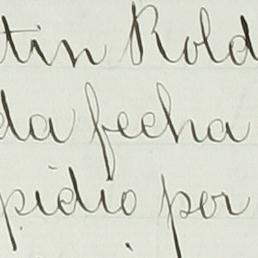 tin Rold
da fecha
pidio por